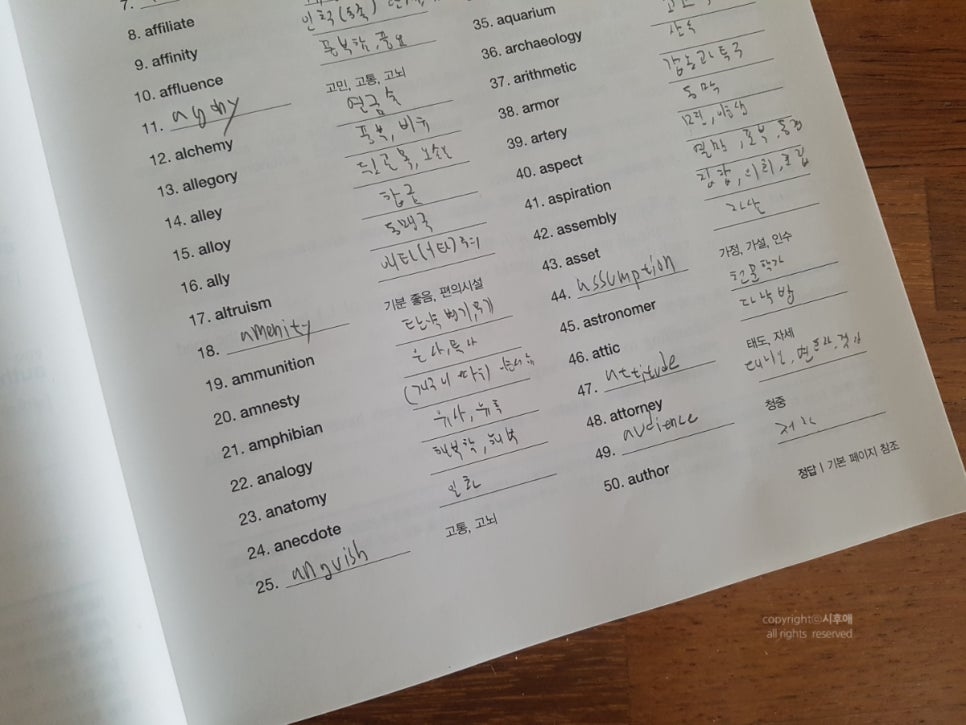 7.
8. affiliate
9. affinity
10. affluence 풍부함, 풍요
11. agony 고민, 고통, 고뇌
12. alchemy 연금술
13. allegory 풍유, 비유
14. alley 뒷골목, 오솔길
15. alloy 합금
16. ally 동맹국
17. altruism 애타(이타)주의
18. amenity 기분 좋음, 편의시설
19. ammunition 탄약, 병기, 무기
20. amnesty 은사, 특사
21. amphibian (개구리 따위) 양서류
22. analogy 유사, 유추
23. anatomy 해부학, 해부
24. anecdote 일화
25. anguish 고통, 고뇌
35. aquarium
36. archaeology
37. arithmetic 산수
38. armor 갑옷과 투구
39. artery 동맥
40. aspect
41. aspiration 열망, 포부, 동경
42. assembly 집합, 의회, 조립
43. asset 자산
44. assumption 가정, 가설, 인수
45. astronomer 천문학자
46. attic 다락방
47. attitude 태도, 자세
48. attorney 대리인, 변호사, 검사
49. audience 청중
50. author 저자
정답 | 기본 페이지 참조
copyrightⓒ시후애
all rights reserved